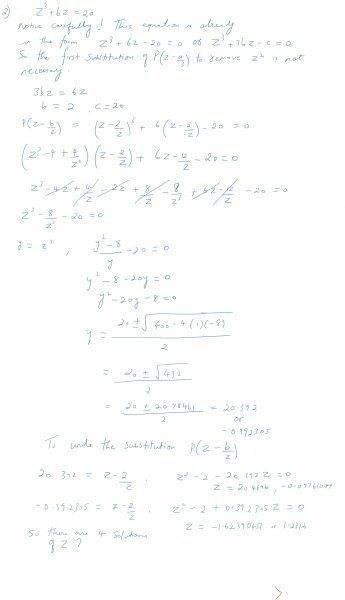 2) z³+6z=20
notice carefully! This equation is already
in the form z³+6z-20=0 or z³+3bz-c=0
So the first substitution of P(z-a/3) to remove z² is not
necessary.
3bz = 6z
b = 2 c=20
P(z-b/z) = (z-2/z)³ + 6(z-2/z)-20 =0
(z²-4+4/z²)(z-2/z) + 6z-12/z-20=0
z³-4z+4/z-2z+8/z-8/z³+6z-12/z-20=0
z³-8/z³-20=0
y= z³, y²-8/y-20=0
y²-8-20y=0
y²-20y-8=0
y = 20±√400-4(1)(-8)/2
= 20±√432/2
= 20±20.78461/2 = 20.392
or
-0.392305
To undo the substitution P(z-b/z)
20.392 = z-2/z, z²-2-20.392z=0
z=20.4896, -0.09761099
-0.392305 = z-2/z, z²-2+0.392305z=0
z=-1.62390451 or 1.2316
So there are 4 solutions
of z?